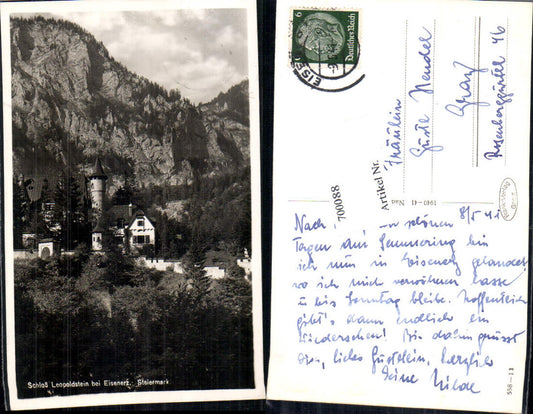 Schloß Leopoldstein bei Eisenerz, Steiermark
6
Deutsches Reich
EISE
Fräulein
Gusti Hendel
Graz
Rosenberggürtel 46
Artikel Nr.
700088
1940-41 Nad
8/5 41
Nach schönen
Tagen am Semmering bin
ich nun in Eisenerz gelandet,
wo ich mich verwöhnen lasse
u bis Sonntag bleibe. Hoffentlich
gibt's dann endlich ein
Wiedersehen! Bis dahin grüsst
Dich, liebes Gustilein, herzlich
Deine Hilde
558-11